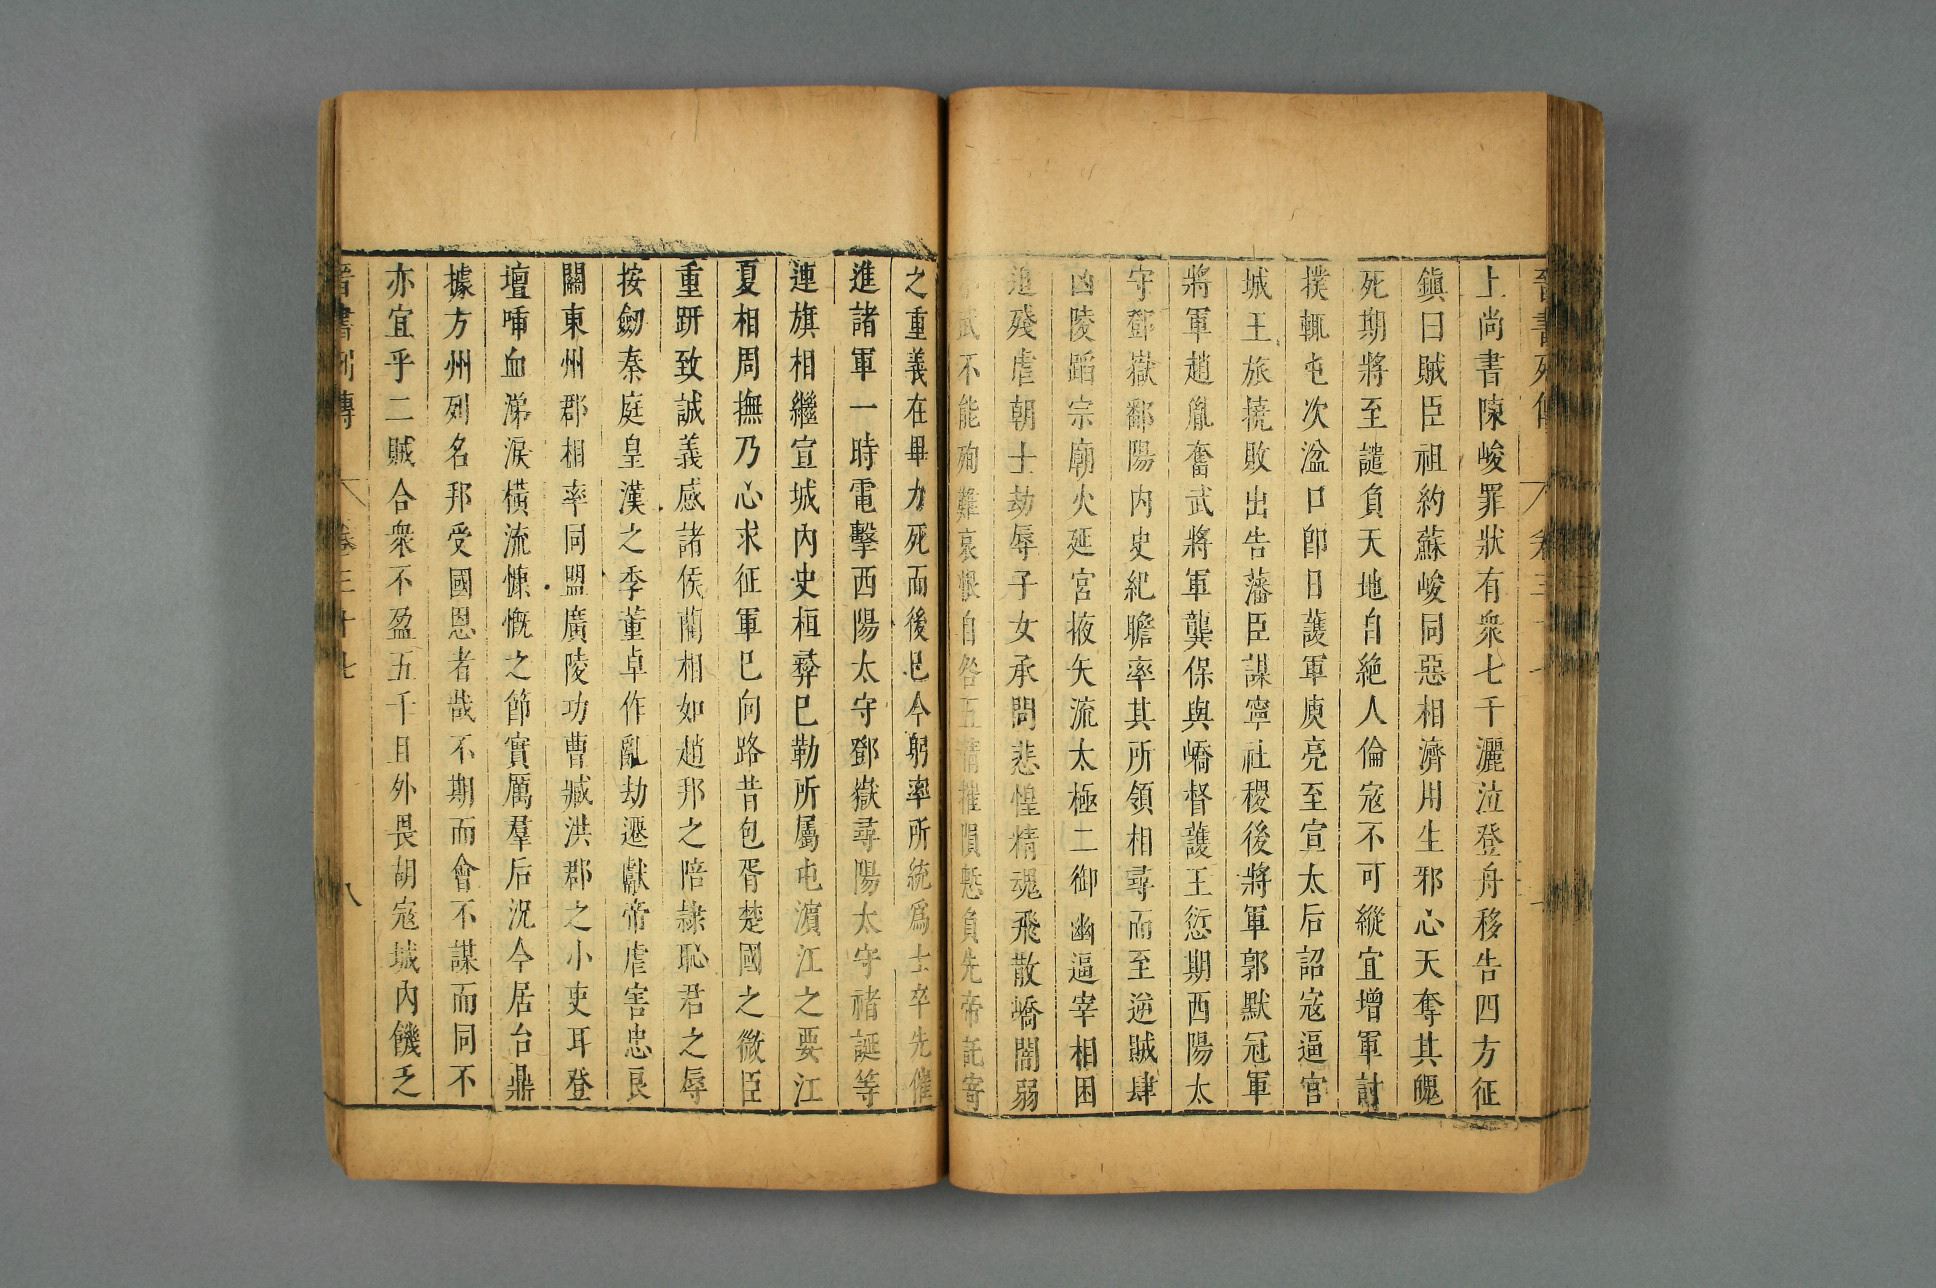 晉書列傳 卷三十七
上尚書陳峻罪狀有衆七千灑泣登舟移告四方征
鎭曰賊臣祖約蘇峻同惡相濟用生邪心天奪其魄
死期將至譴負天地自絶人倫寇不可縱宜增軍討
撲輒屯次湓口卽日護軍庾亮至宣太后詔寇逼宮
城王旅撓敗出告藩臣謀寧社稷後將軍郭默冠軍
將軍趙胤奮武將軍龔保與嶠督護王愆期西陽太
守鄧嶽鄱陽內史紀瞻率其所領相尋而至逆賊肆
凶陵蹈宗廟火延宮掖矢流太極二御幽逼宰相困
迫殘虐朝士劫辱子女承問悲惶精魂飛散嶠闇弱
武不能殉難哀恨自咎五情摧隕慙負先帝託寄
之重義在畢力死而後已今躬率所統爲士卒先催
進諸軍一時電擊西陽太守鄧嶽尋陽太守褚誕等
連旗相繼宣城內史桓彛已勒所屬屯濱江之要江
夏相周撫乃心求征軍已向路昔包胥楚國之微臣
重趼致誠義感諸侯藺相如趙邦之陪隸恥君之辱
按劒秦庭皇漢之季董卓作亂劫遷獻帝虐害忠良
關東州郡相率同盟廣陵功曹臧洪郡之小吏耳登
壇喢血涕淚橫流慷慨之節實厲羣后況今居台鼎
據方州列名邦受國恩者哉不期而會不謀而同不
亦宜乎二賊合衆不盈五千且外畏胡寇城內饑乏
晉書列傳 卷三十七 八